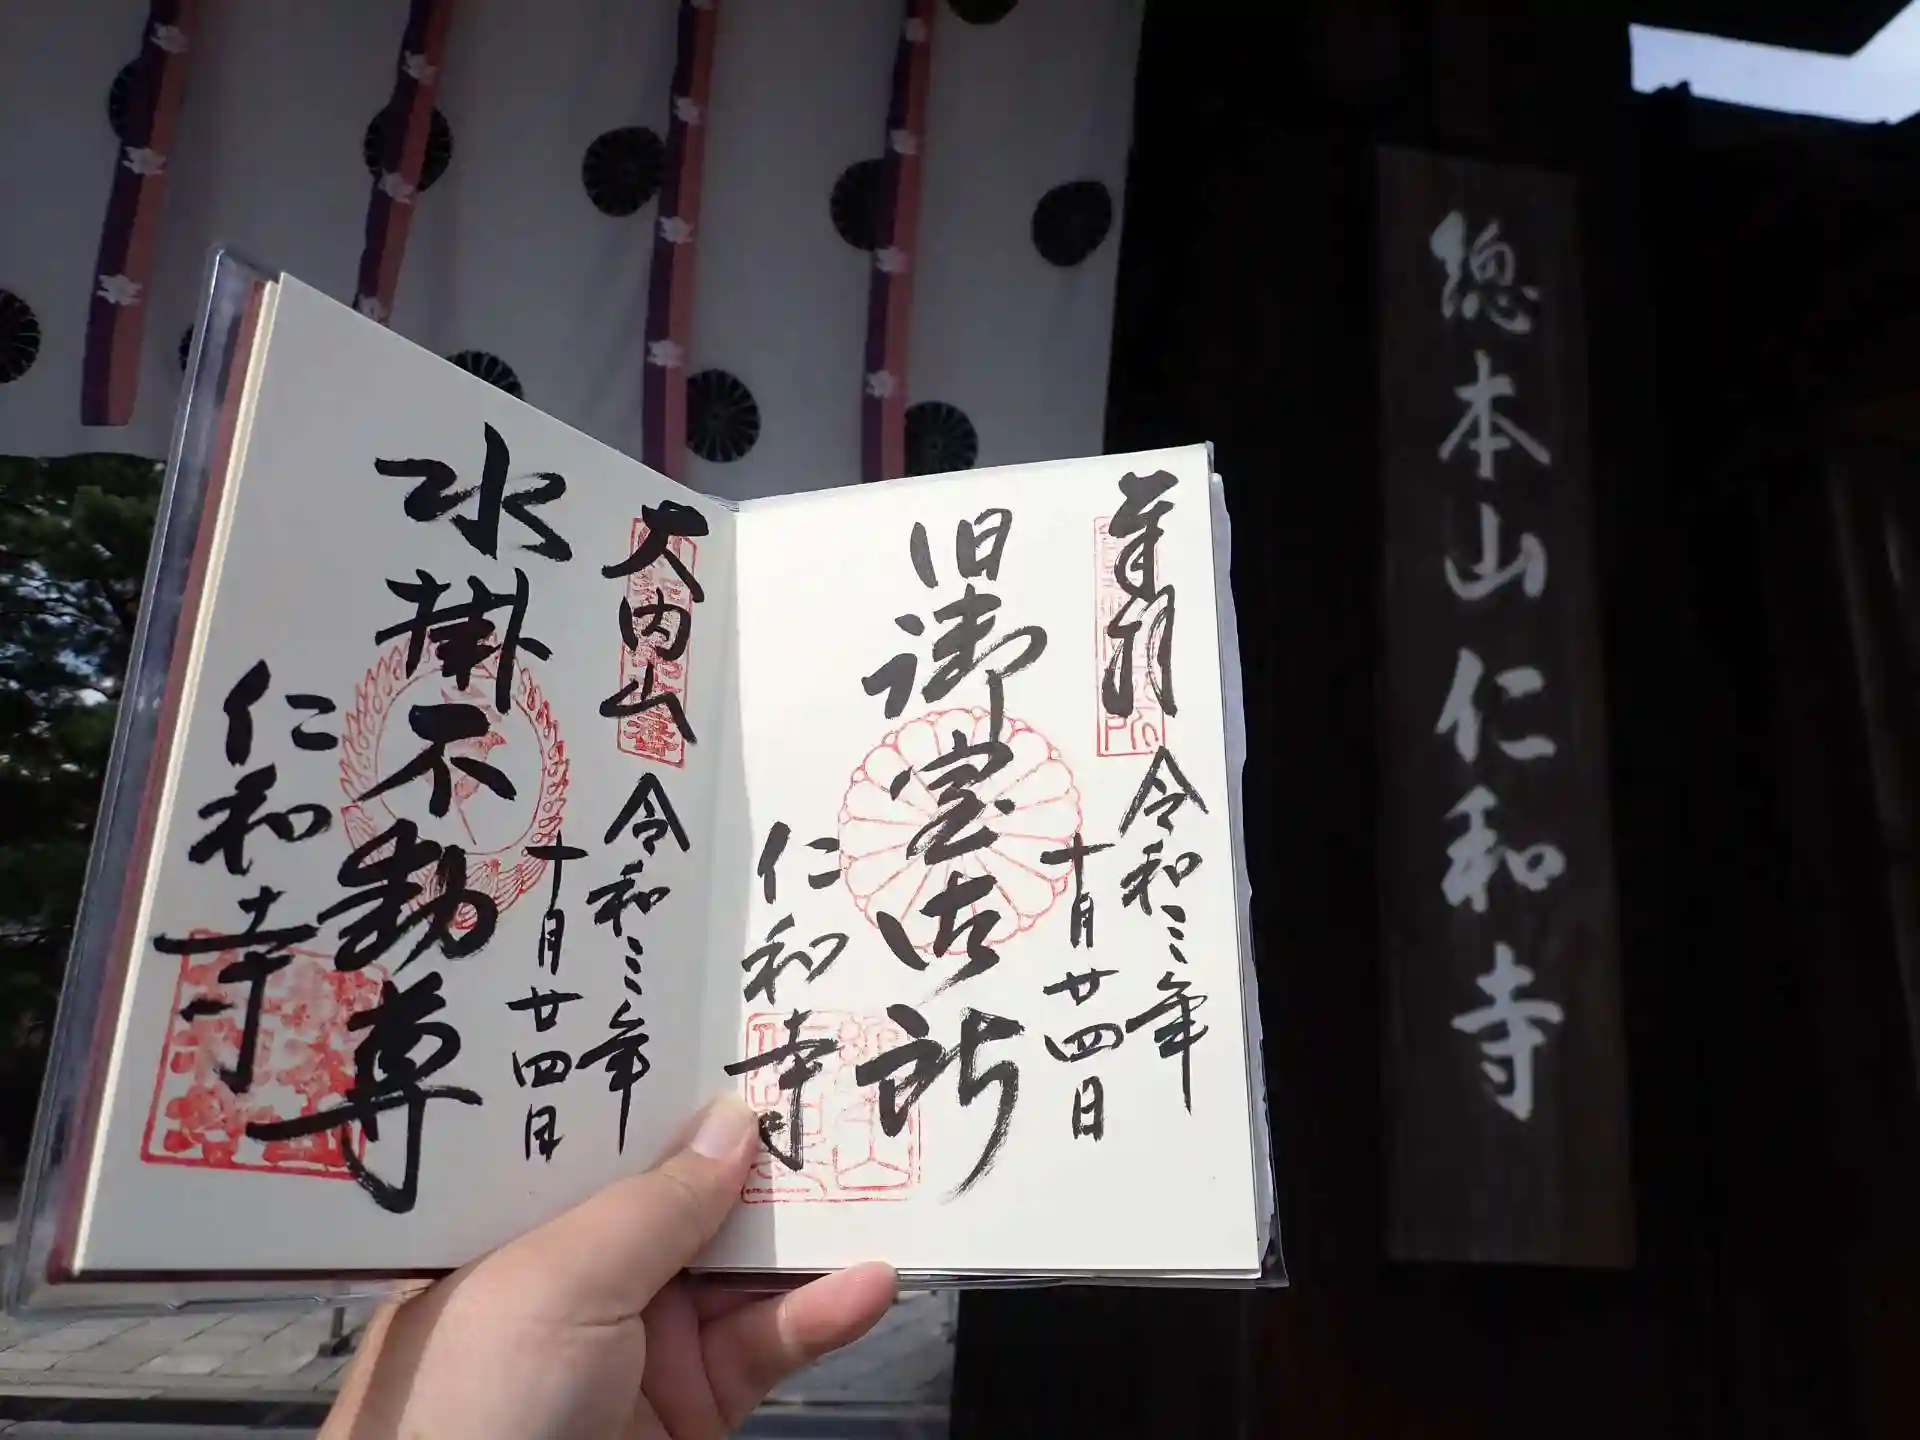 總本山仁和寺
奉拝
令和三年
十月廿四日
旧御室御所
仁和寺
大内山
令和三年
十月廿四日
水掛不動尊
仁和寺